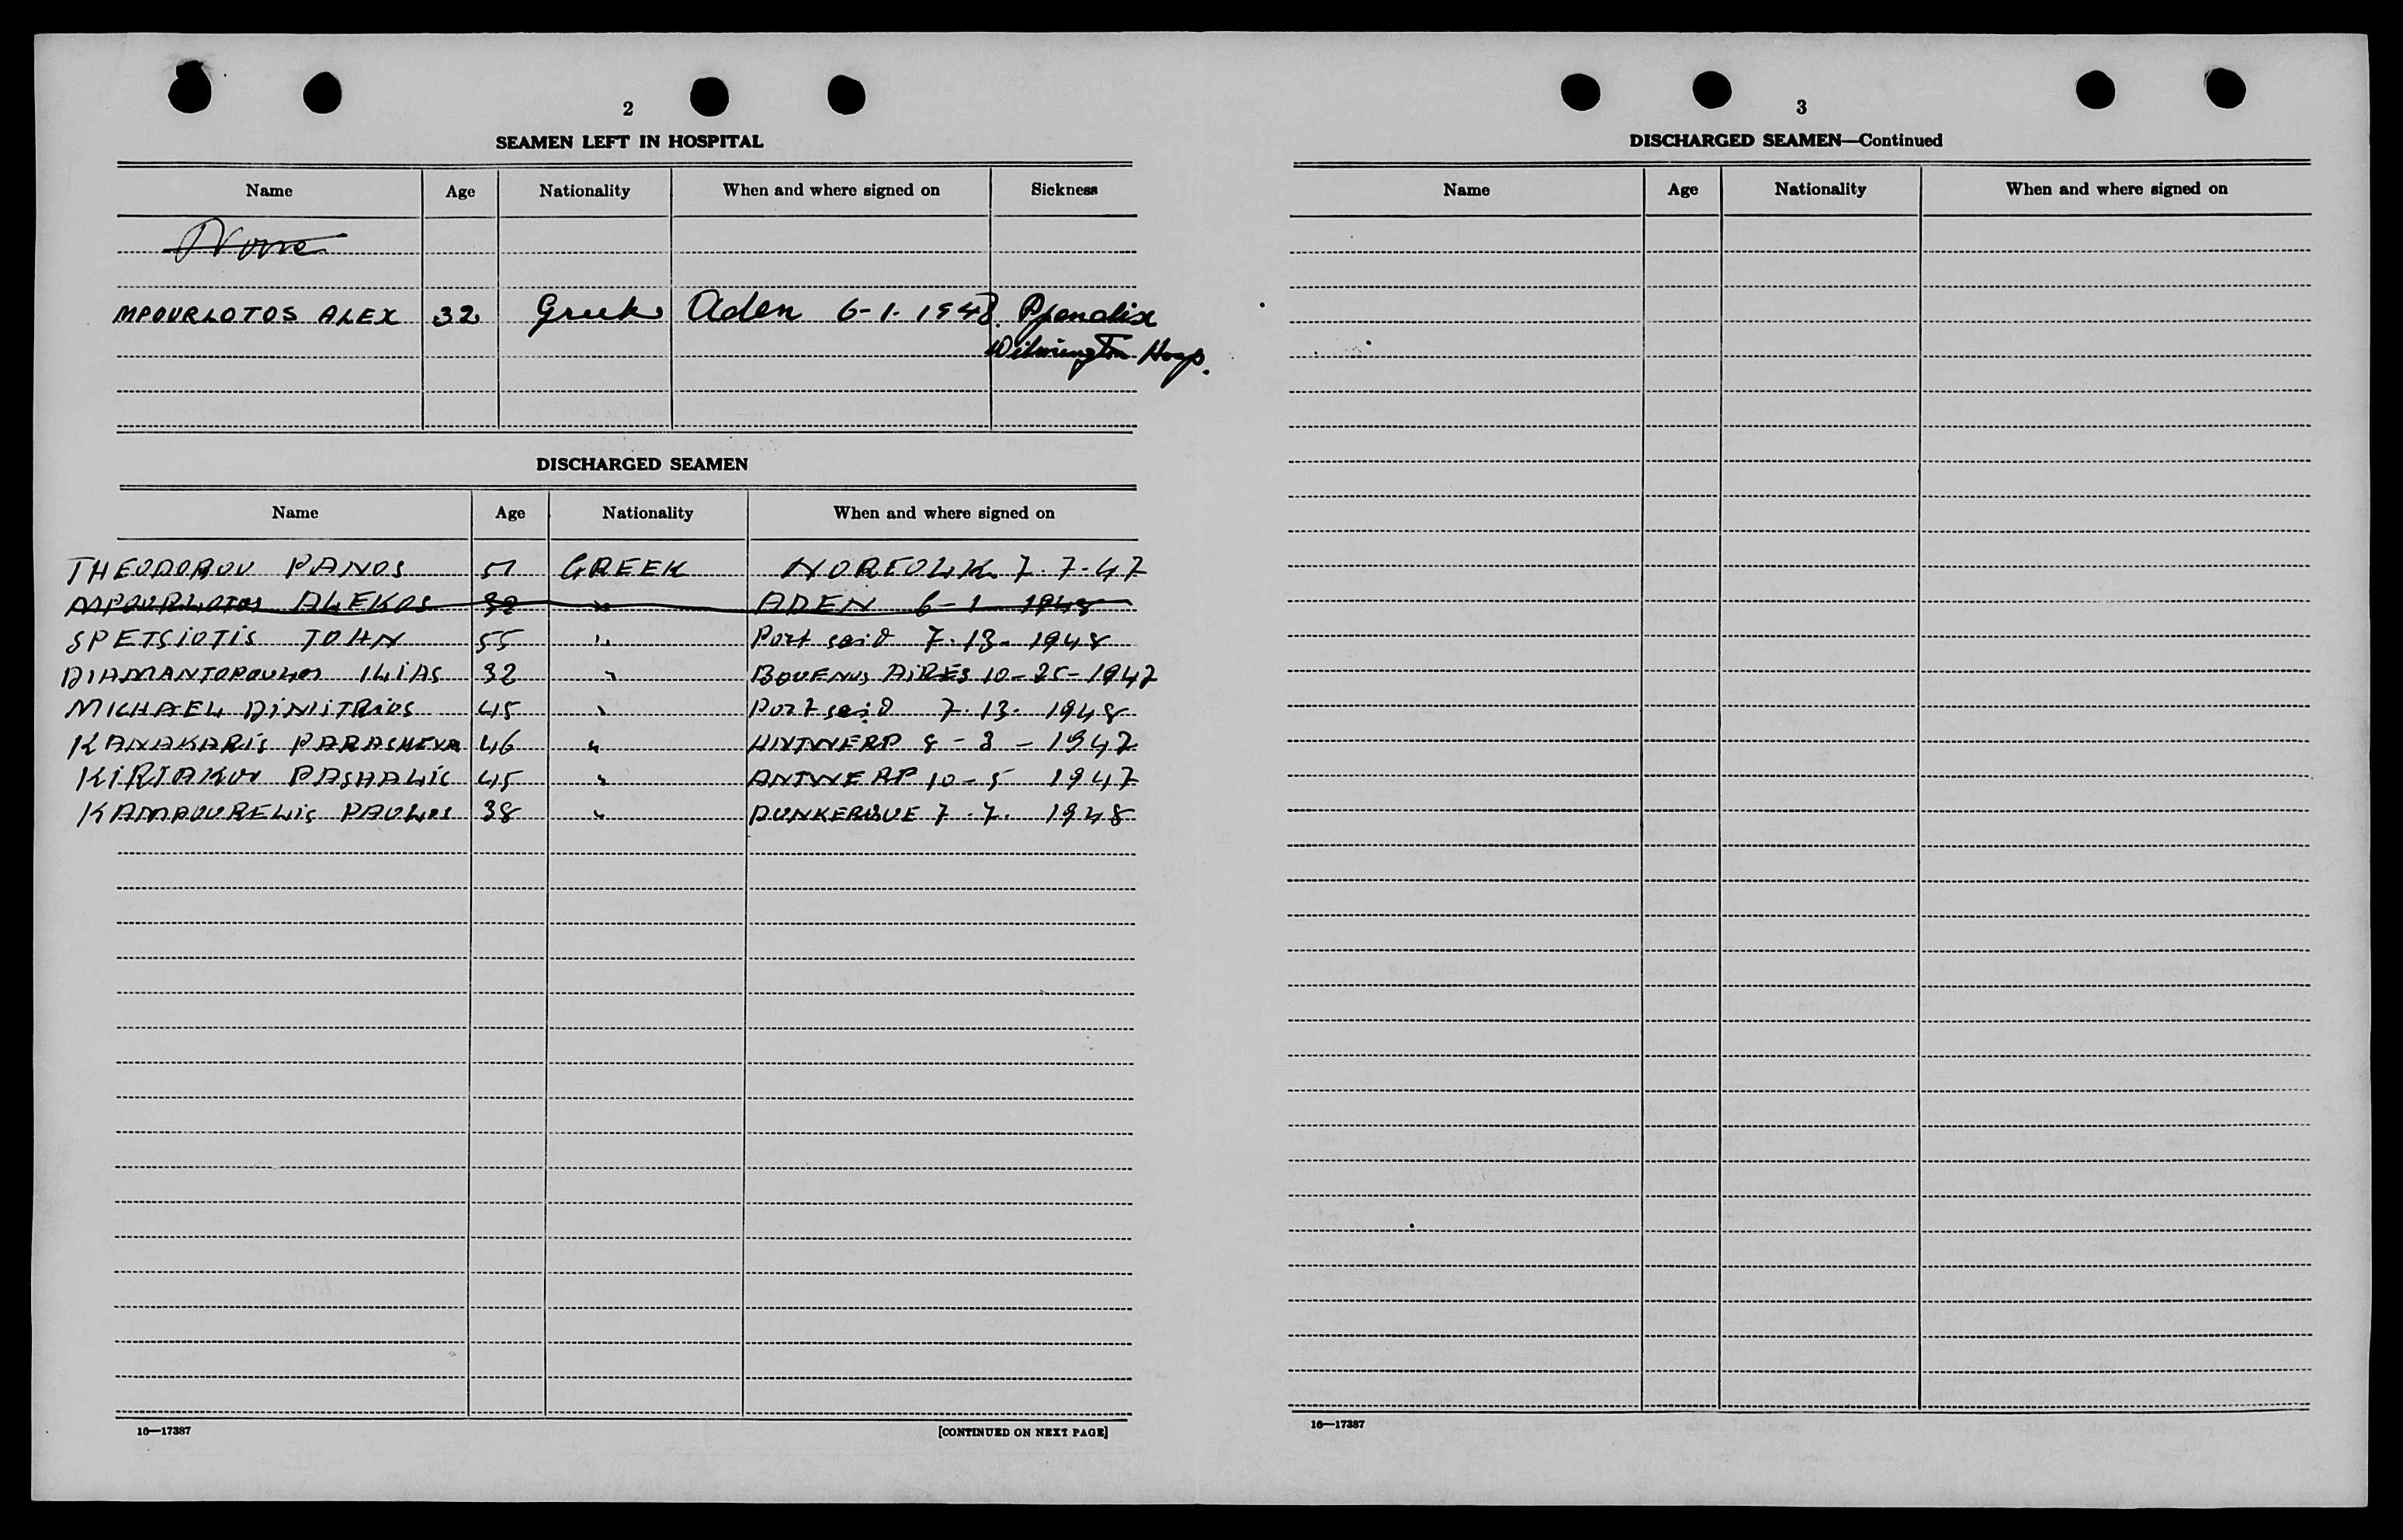 2
SEAMEN LEFT IN HOSPITAL
Name Age Nationality When and where signed on Sickness
None
MPOURLOTOS ALEX 32 Greek Aden 6-1-1948. Ppendix
Wilmington Hosp.
DISCHARGED SEAMEN
Name Age Nationality When and where signed on
THEODOROU PANOS 51 GREEK NORFOLK 7-7-47
MPOURLOTOS ALEKOS 32 " ADEN 6-1 1948
SPETSIOTIS JOHN 55 " Port said 7-13-1948
DIAMANTOPOULOS ILIAS 32 " BOUENUS AIRES 10-25-1947
MICHAEL DIMITRIOS 45 " Port said 7-13-1948
KANAKARIS PARASKEVA 46 " ANTWERP 8-3-1947
KIRIAKOU PASHALIS 45 " ANTWERP 10-5 1947
KAMPOURELIS PAULOS 38 " DUNKERQUE 7-7-1948
16—17387 [CONTINUED ON NEXT PAGE]
3
DISCHARGED SEAMEN—Continued
Name Age Nationality When and where signed on
16—17387